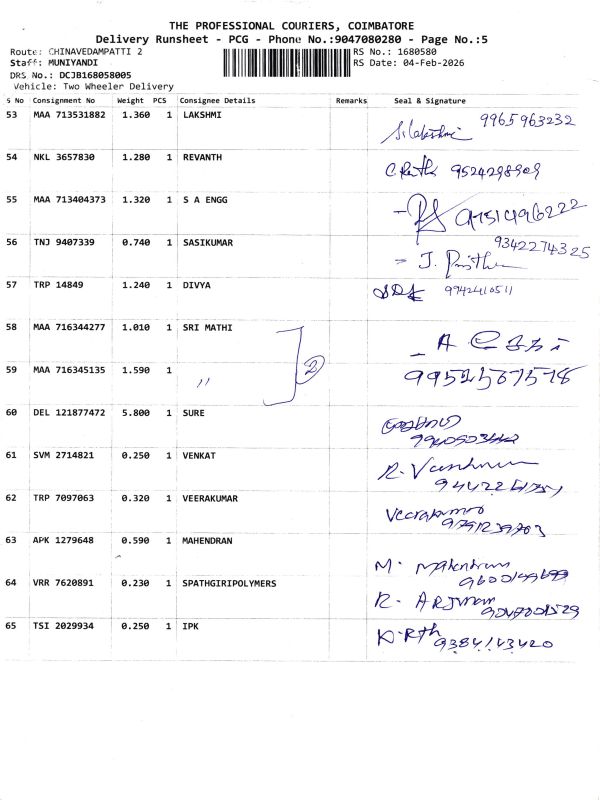 THE PROFESSIONAL COURIERS, COIMBATORE
Delivery Runsheet - PCG - Phone No.:9047080280 - Page No.:5
Route: CHINAVEDAMPATTI 2
RS No.: 1680580
Staff: MUNIYANDI
RS Date: 04-Feb-2026
DRS No.: DCJB168058005
Vehicle: Two Wheeler Delivery
S No Consignment No Weight PCS Consignee Details Remarks Seal & Signature
53 MAA 713531882 1.360 1 LAKSHMI 9965963232
54 NKL 3657830 1.280 1 REVANTH 9524298909
55 MAA 713404373 1.320 1 S A ENGG
56 TNJ 9407339 0.740 1 SASIKUMAR 9342274325
57 TRP 14849 1.240 1 DIVYA 9942410511
58 MAA 716344277 1.010 1 SRI MATHI
59 MAA 716345135 1.590 1 〃 2
60 DEL 121877472 5.800 1 SURE
61 SVM 2714821 0.250 1 VENKAT
62 TRP 7097063 0.320 1 VEERAKUMAR Veerakumar
63 APK 1279648 0.590 1 MAHENDRAN M. Mahendran
64 VRR 7620891 0.230 1 SPATHGIRIPOLYMERS R. ARJUNAN
65 TSI 2029934 0.250 1 IPK 9384143420